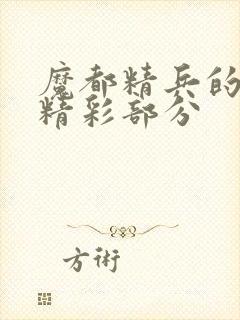 魔都精兵的
精彩部分
方術